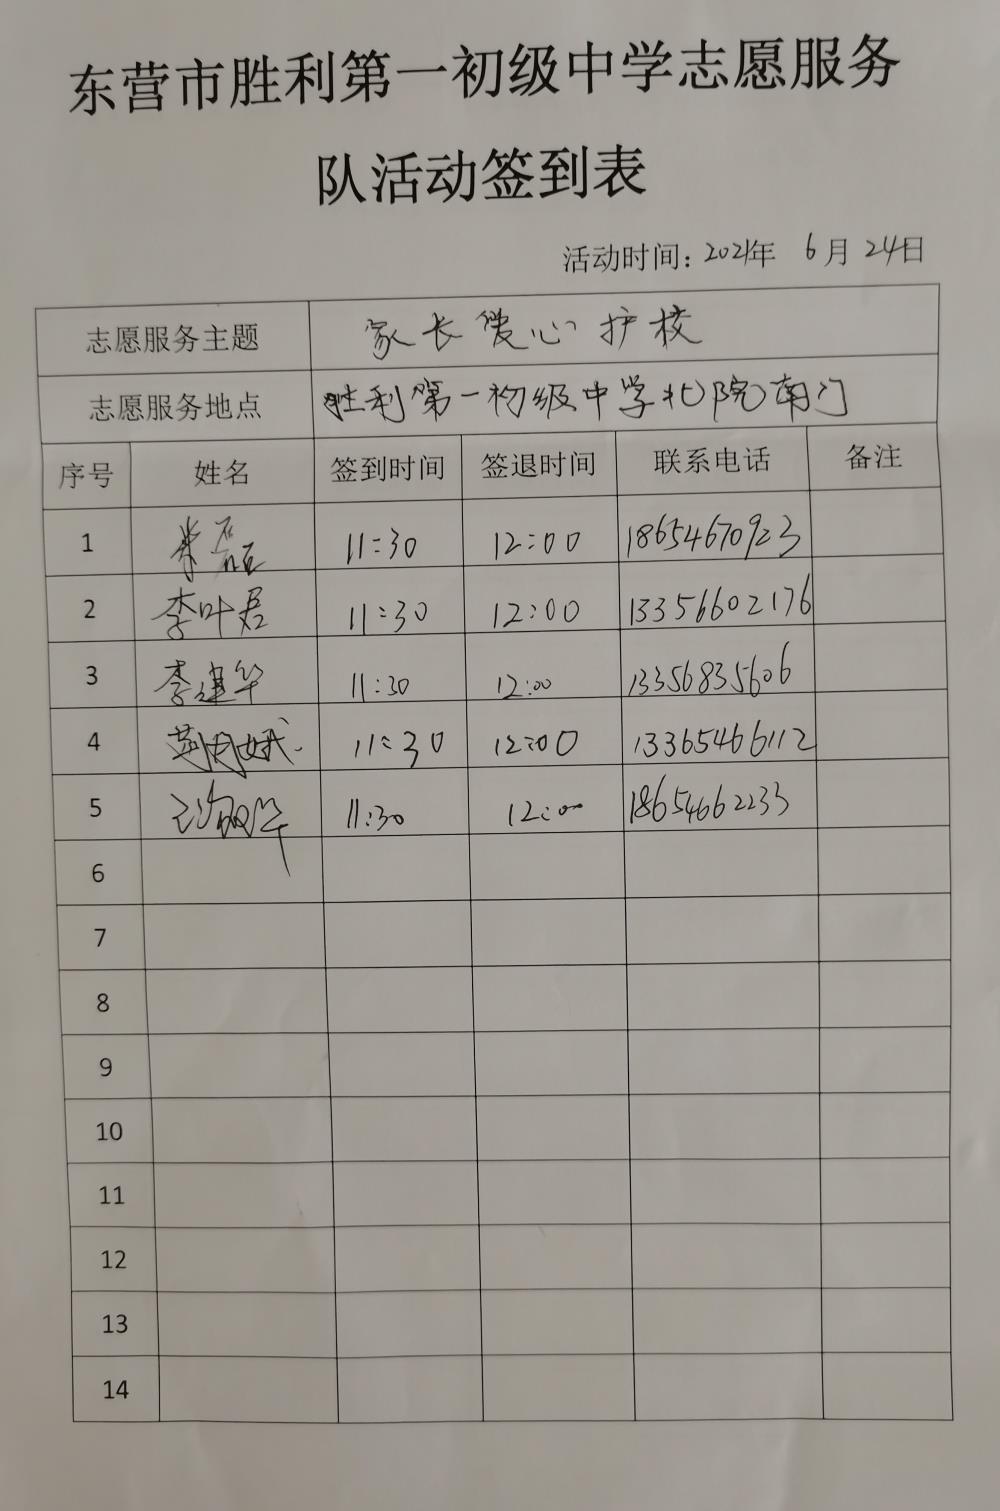 东营市胜利第一初级中学志愿服务
队活动签到表
活动时间：2021年 6月 24日
志愿服务主题 家长爱心护校
志愿服务地点 胜利第一初级中学北院南门
序号 姓名 签到时间 签退时间 联系电话 备注
1 磊 11:30 12:00 18654670923
2 李叶君 11:30 12:00 13356602176
3 李建华 11:30 12:00 13356835606
4 11:30 12:00 13365466112
5 11:30 12:00 18654662233
6
7
8
9
10
11
12
13
14